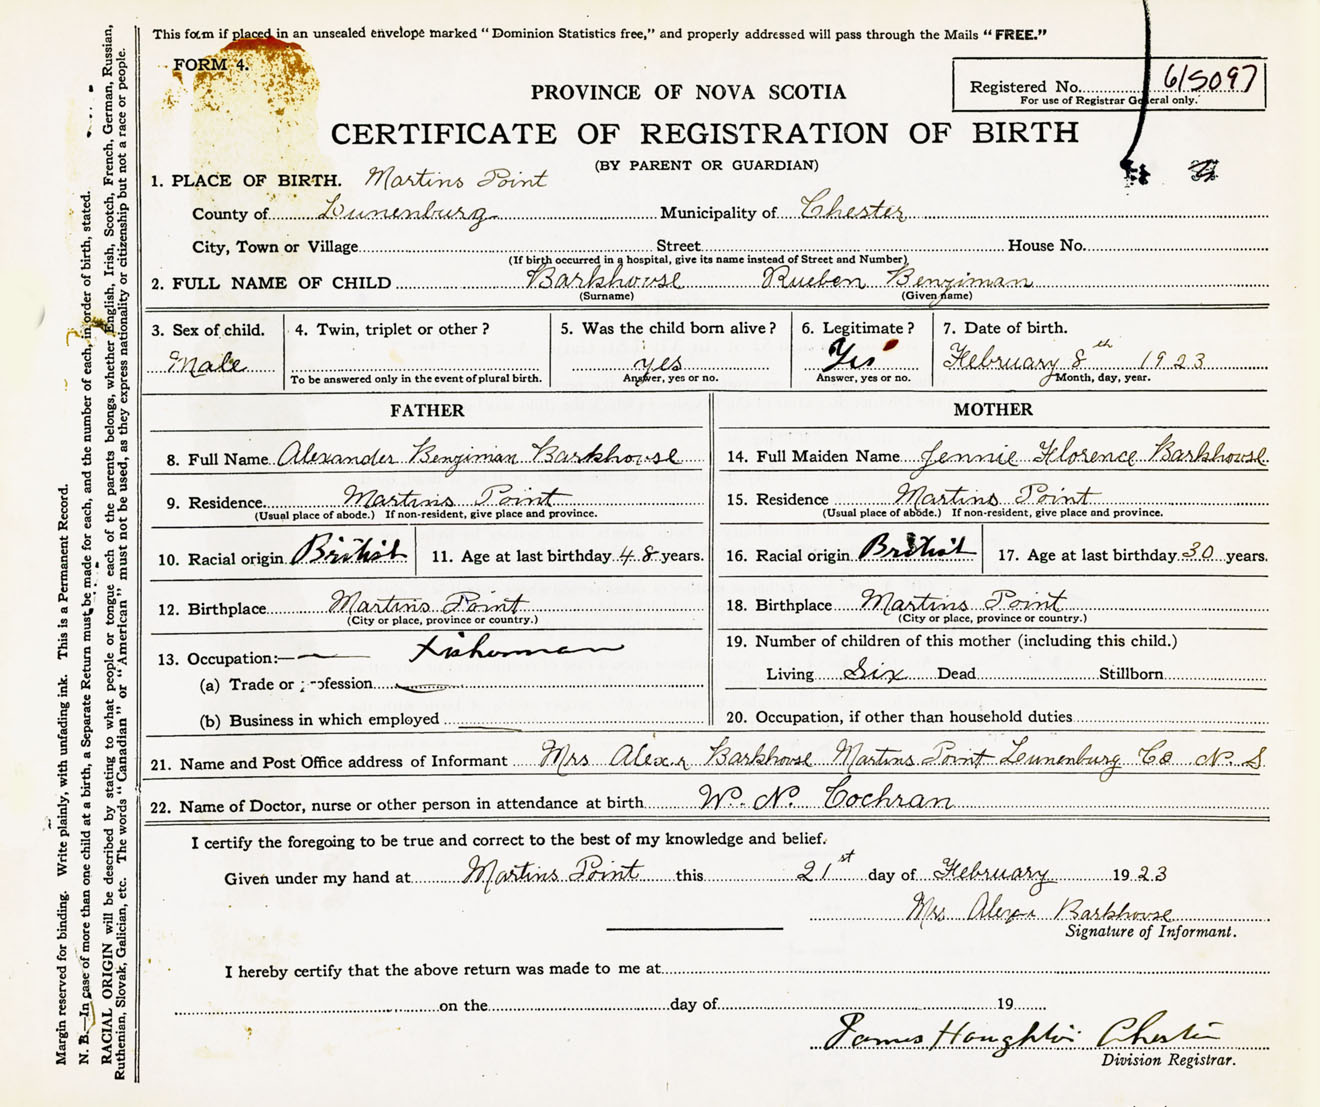 This form if placed in an unsealed envelope marked "Dominion Statistics free," and properly addressed will pass through the Mails "FREE."
FORM 4.
Registered No. 615097
For use of Registrar General only.
PROVINCE OF NOVA SCOTIA
CERTIFICATE OF REGISTRATION OF BIRTH
(BY PARENT OR GUARDIAN)
1. PLACE OF BIRTH. Martins Point
County of Lunenburg Municipality of Chester
City, Town or Village Street House No.
(If birth occurred in a hospital, give its name instead of Street and Number)
2. FULL NAME OF CHILD Barkhouse Rueben Benjiman
(Surname) (Given name)
3. Sex of child. 4. Twin, triplet or other? 5. Was the child born alive? 6. Legitimate? 7. Date of birth.
Male yes Yes February 8th 1923
To be answered only in the event of plural birth. Answer, yes or no. Answer, yes or no. Month, day, year.
FATHER MOTHER
8. Full Name Alexander Benjiman Barkhouse 14. Full Maiden Name Jennie Florence Barkhouse
9. Residence Martins Point 15. Residence Martins Point
(Usual place of abode.) If non-resident, give place and province. (Usual place of abode.) If non-resident, give place and province.
10. Racial origin British 11. Age at last birthday 48 years. 16. Racial origin British 17. Age at last birthday 30 years.
12. Birthplace Martins Point 18. Birthplace Martins Point
(City or place, province or country.) (City or place, province or country.)
13. Occupation:— Fisherman 19. Number of children of this mother (including this child.)
(a) Trade or profession Living Six Dead Stillborn
(b) Business in which employed 20. Occupation, if other than household duties
21. Name and Post Office address of Informant Mrs Barkhouse Martins Point Lunenburg Co N. S
22. Name of Doctor, nurse or other person in attendance at birth W. N. Cochran
I certify the foregoing to be true and correct to the best of my knowledge and belief.
Given under my hand at Martins Point this 21st day of February 1923
Mrs Barkhouse
Signature of Informant.
I hereby certify that the above return was made to me at
on the day of 19
James Houghton Chester
Division Registrar.
Margin reserved for binding. Write plainly, with unfading ink. This is a Permanent Record.
N. B.—In case of more than one child at a birth, a Separate Return must be made for each, and the number of each, in order of birth, stated.
RACIAL ORIGIN will be described by stating to what people or tongue each of the parents belongs, whether English, Irish, Scotch, French, German, Russian,
Ruthenian, Slovak, Galician, etc. The words "Canadian" or "American" must not be used, as they express nationality or citizenship but not a race or people.